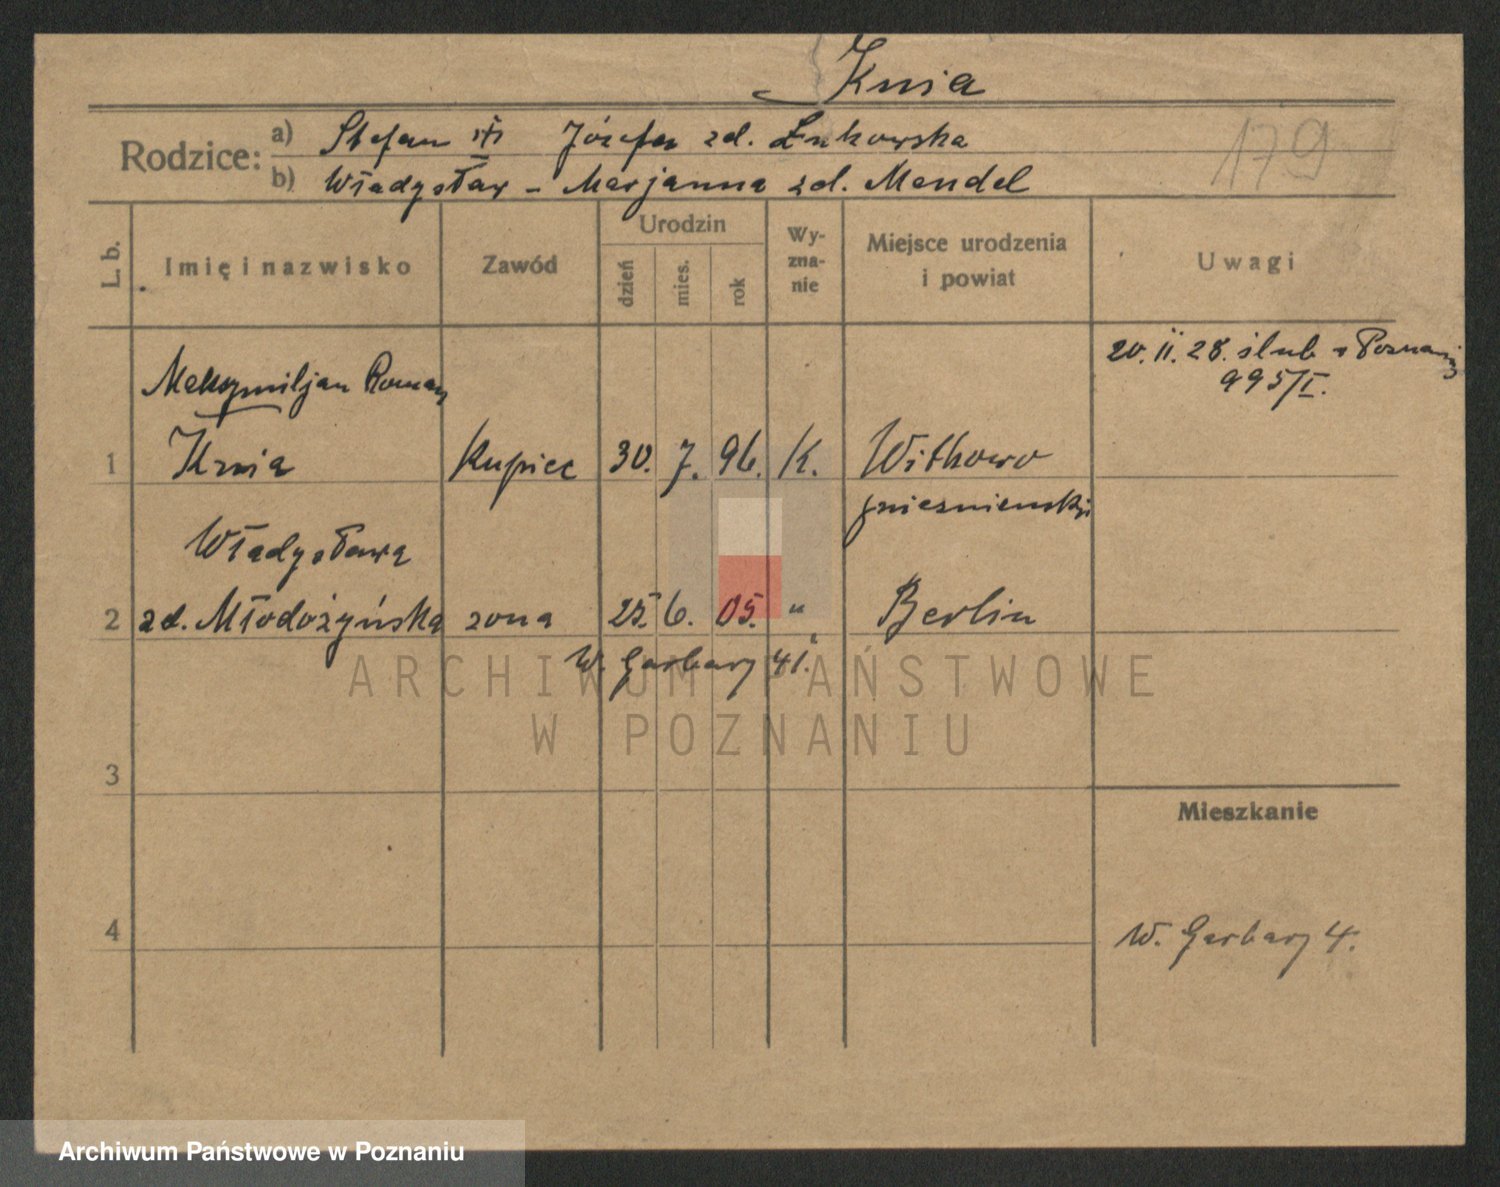 Knia
Rodzice: a) Stefan Józefa zd. Łukowska
b) Władysław - Marjanna zd. Mendel
179
L. b. Imię i nazwisko Zawód Urodzin dzień mies. rok Wy-zna-nie Miejsce urodzenia i powiat Uwagi
20. II. 28. ślub w Poznaniu
995/I.
Maksymiljan Roman
1 Knia Kupiec 30. 7. 96. K. Witkowo
gnieznienski
Władysława
2 zd. Młodożyńska żona 25. 6. 05. " Berlin
W. Garbary 41.
ARCHIWUM PAŃSTWOWE
W POZNANIU
3
Mieszkanie
4 W. Garbary 4.
Archiwum Państwowe w Poznaniu